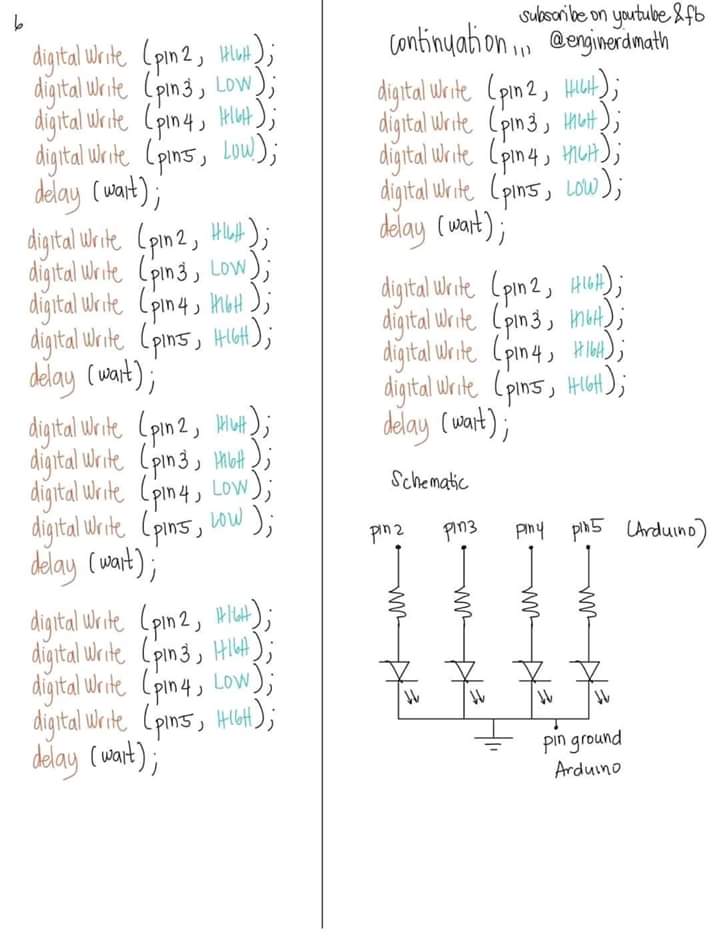 6
digital Write (pin2, HIGH);
digital Write (pin3, LOW);
digital Write (pin4, HIGH);
digital Write (pin5, LOW);
delay (wait);
digital Write (pin2, HIGH);
digital Write (pin3, LOW);
digital Write (pin4, HIGH);
digital Write (pin5, HIGH);
delay (wait);
digital Write (pin2, HIGH);
digital Write (pin3, HIGH);
digital Write (pin4, LOW);
digital Write (pin5, LOW);
delay (wait);
digital Write (pin2, HIGH);
digital Write (pin3, HIGH);
digital Write (pin4, LOW);
digital Write (pin5, HIGH);
delay (wait);
subscribe on youtube & fb
continuation... @enginerdmath
digital Write (pin2, HIGH);
digital Write (pin3, HIGH);
digital Write (pin4, HIGH);
digital Write (pin5, LOW);
delay (wait);
digital Write (pin2, HIGH);
digital Write (pin3, HIGH);
digital Write (pin4, HIGH);
digital Write (pin5, HIGH);
delay (wait);
Schematic
pin2 pin3 pin4 pin5 (Arduino)
pin ground
Arduino